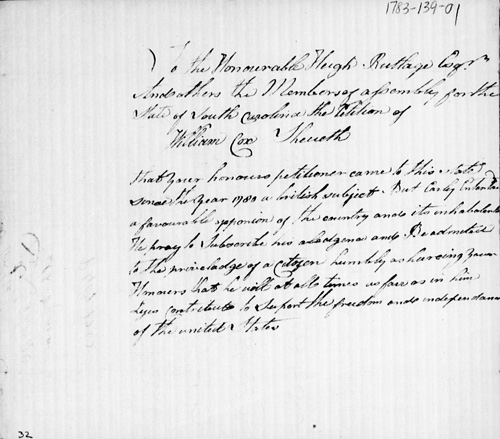 1783-139-01
To the Honourable Heugh Rutlage Esqr
And others the Members of assembly for the
State of South Carolina the Petition of
William Cox Sheweth
that your honours petitioner came to this State
Since the Year 1780 a british subject But Early
a favourable opponion of the country and its inhabitants
He pray to Subscribe his aledgena and Be admited
to the priveladge of a Citizen humbly ashureing your
Honours that he will at all times as fare as in him
Lyes contribute to Suport the freedom and independance
of the united States
32